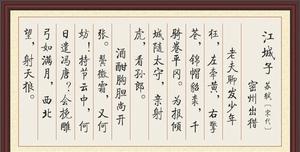 江城子 苏轼 [宋代]
密州出猎
老夫聊发少年
狂，左牵黄，右擎
苍，锦帽貂裘，千
骑卷平冈。为报倾
城随太守，亲射
虎，看孙郎。
酒酣胸胆尚开
张。鬓微霜，又何
妨！持节云中，何
日遣冯唐？会挽雕
弓如满月，西北
望，射天狼。